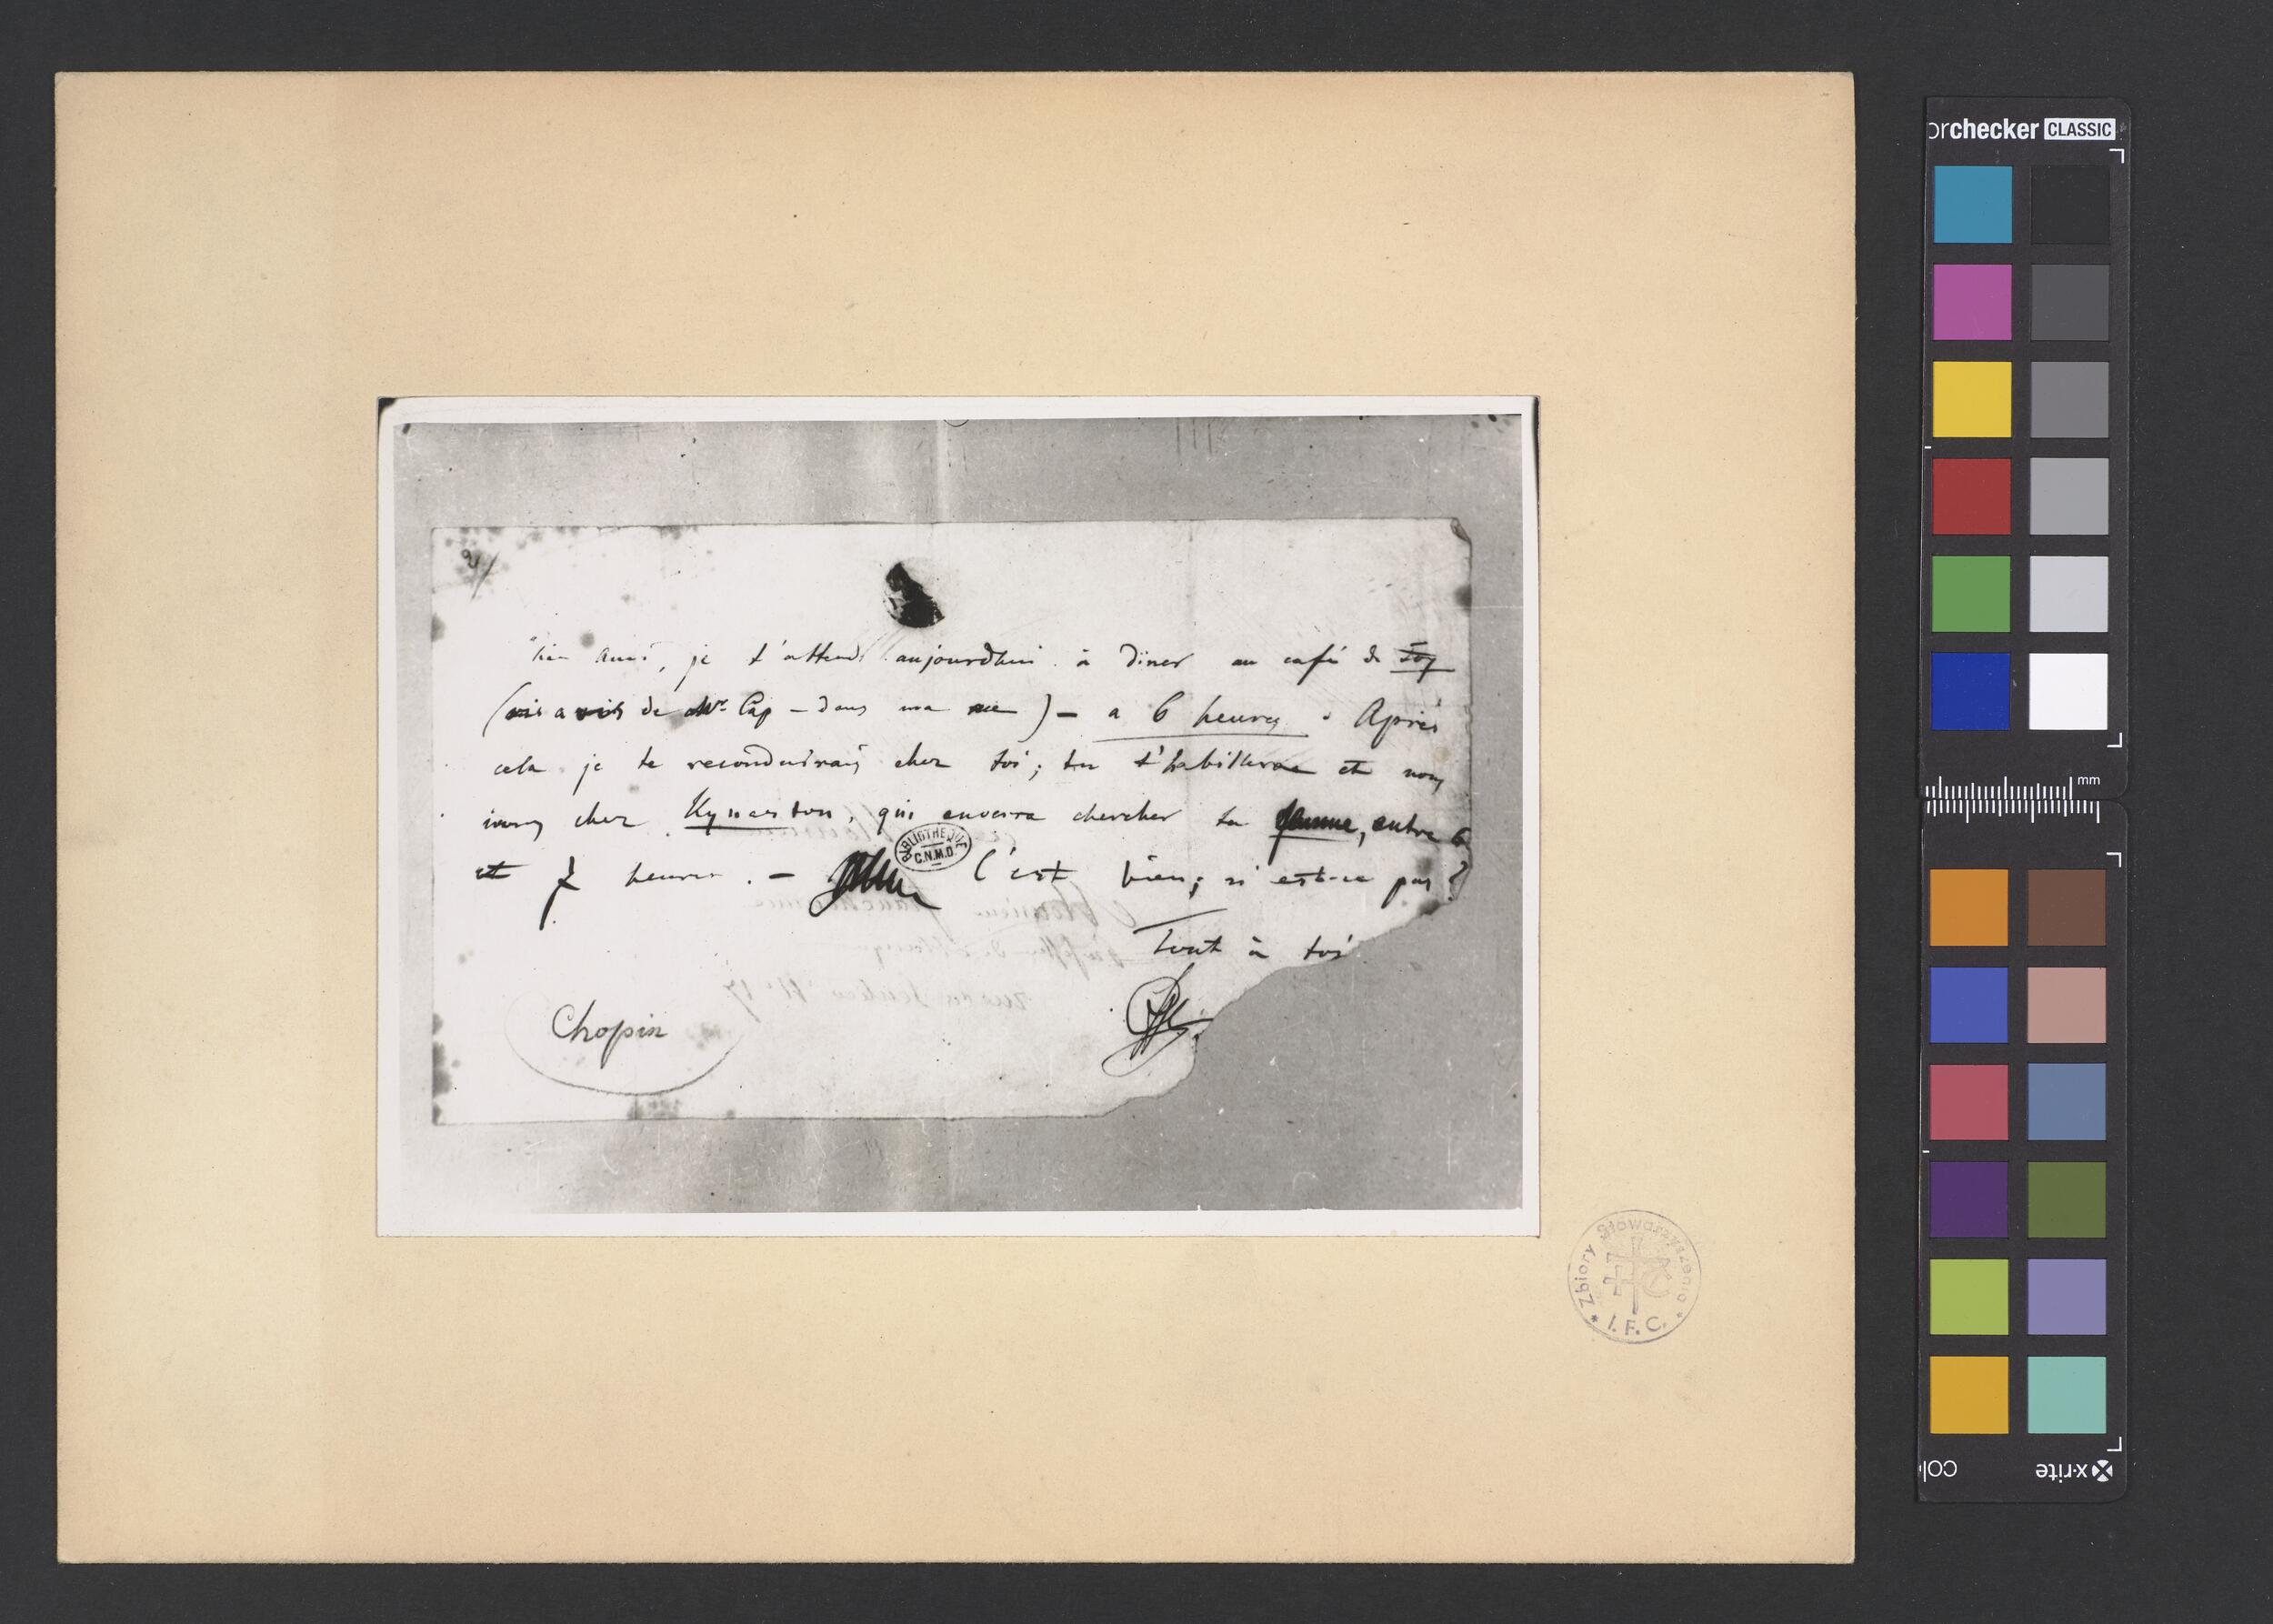 2/
ami, je t'attends aujourdhui à Diner au café de Foy
(vis a vis de Mr. Cap – dans ma rue) – a 6 heures. Après
cela je te reconduirais chez toi; tu t'habilleras et nous
irons chez Kynaston, qui enverra chercher ta femme, entre 6
et 7 heures. – C'est bien; n'est-ce pas?
Tout à toi
Chopin
BIBLIOTHEQUE
C.N.M.D.
Zbiory Stowarzyszenia
I.F.C.
orchecker CLASSIC
mm
x-rite
colo